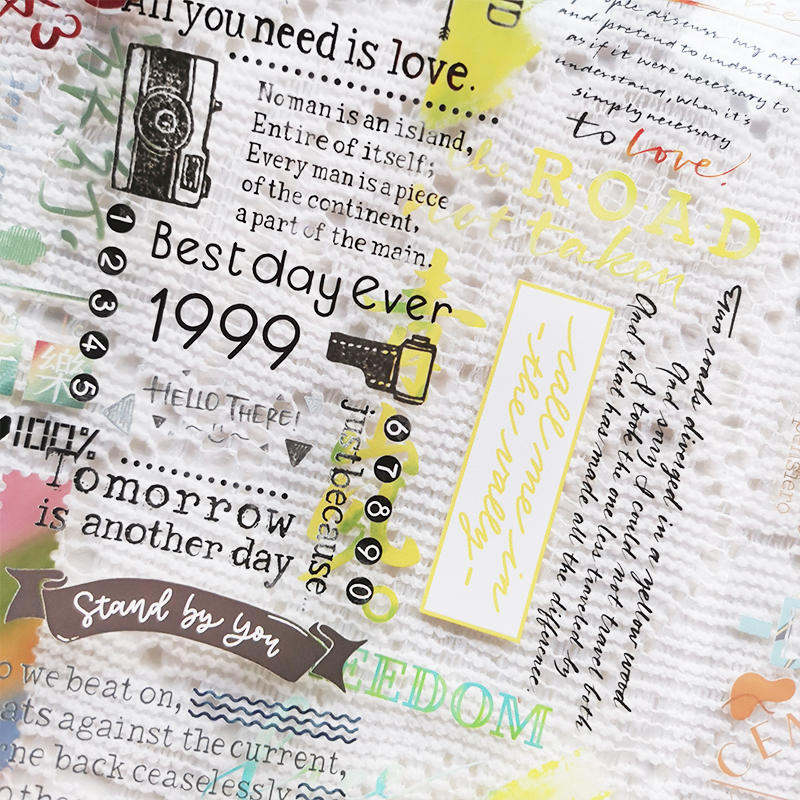 All you need is love.
No man is an island,
Entire of itself;
Every man is a piece
of the continent,
a part of the main.
1
2
3
4
5
Best day ever
1999
HELLO THERE!
100%
Tomorrow
is another day
just because...
6
7
8
9
0
Stand by You
we beat on,
ats against the current,
ne back ceaselessly
ple discuss my art
and pretend to understand
as if it were necessary to
understand, when it's
simply necessary
to love.
the ROAD
not taken
call me in
-the vally-
Two roads diverged in a yellow wood
And sorry I could not travel both
I took the one less traveled by
And that has made all the difference.
EEDOM
樂